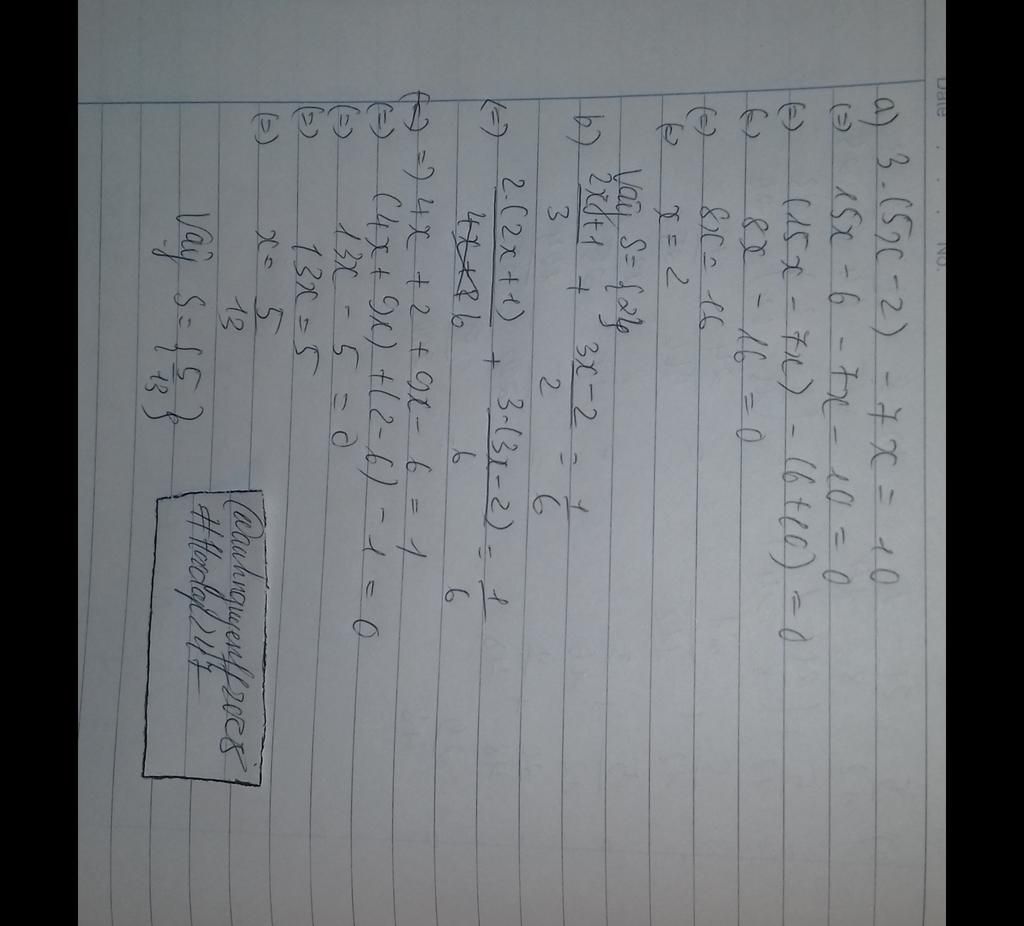 Date . . No.
a) 3.(5x-2) - 7x = 10
(=) 15x - 6 - 7x - 10 = 0
(=) (15x - 7x) - (6+10) = 0
(=) 8x - 16 = 0
(=) 8x = 16
(=) x = 2
Vậy S = {2}
b) \frac{2x+1}{3} + \frac{3x-2}{2} = \frac{1}{6}
(=) \frac{2.(2x+1)}{6} + \frac{3.(3x-2)}{6} = \frac{1}{6}
(=) =) 4x + 2 + 9x - 6 = 1
(=) (4x + 9x) + (2-6) - 1 = 0
(=) 13x - 5 = 0
(=) 13x = 5
(=) x = \frac{5}{13}
Vậy S = {\frac{5}{13}}